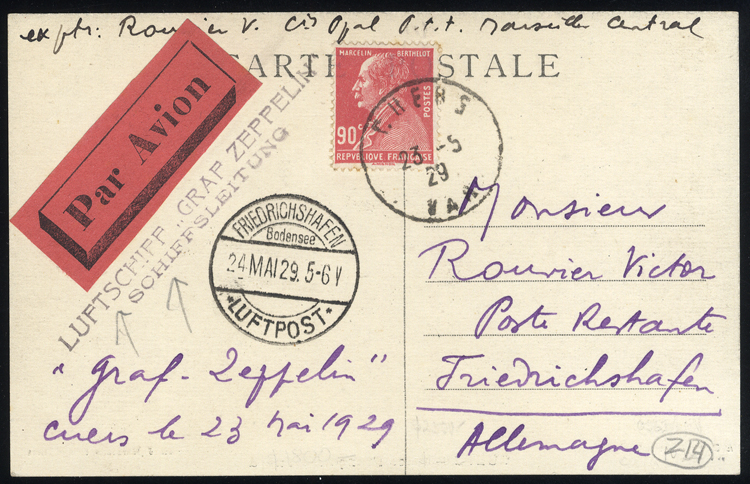 exptr: Rouvier V. Cis Ppal P.t.t. Marseille Central
CARTE POSTALE
MARCELIN BERTHELOT
POSTES
90c
REPVBLIQVE FRANÇAISE
Par Avion
LUFTSCHIFF „GRAF ZEPPELIN
SCHIFFSLEITUNG
CUERS
23 -5
29
VAR
FRIEDRICHSHAFEN
Bodensee
24 MAI 29. 5-6 V
*LUFTPOST*
Monsieur
Rouvier Victor
Poste Restante
Friedrichshafen
Allemagne
"Graf-Zeppelin"
Cuers le 23 Mai 1929
Z14